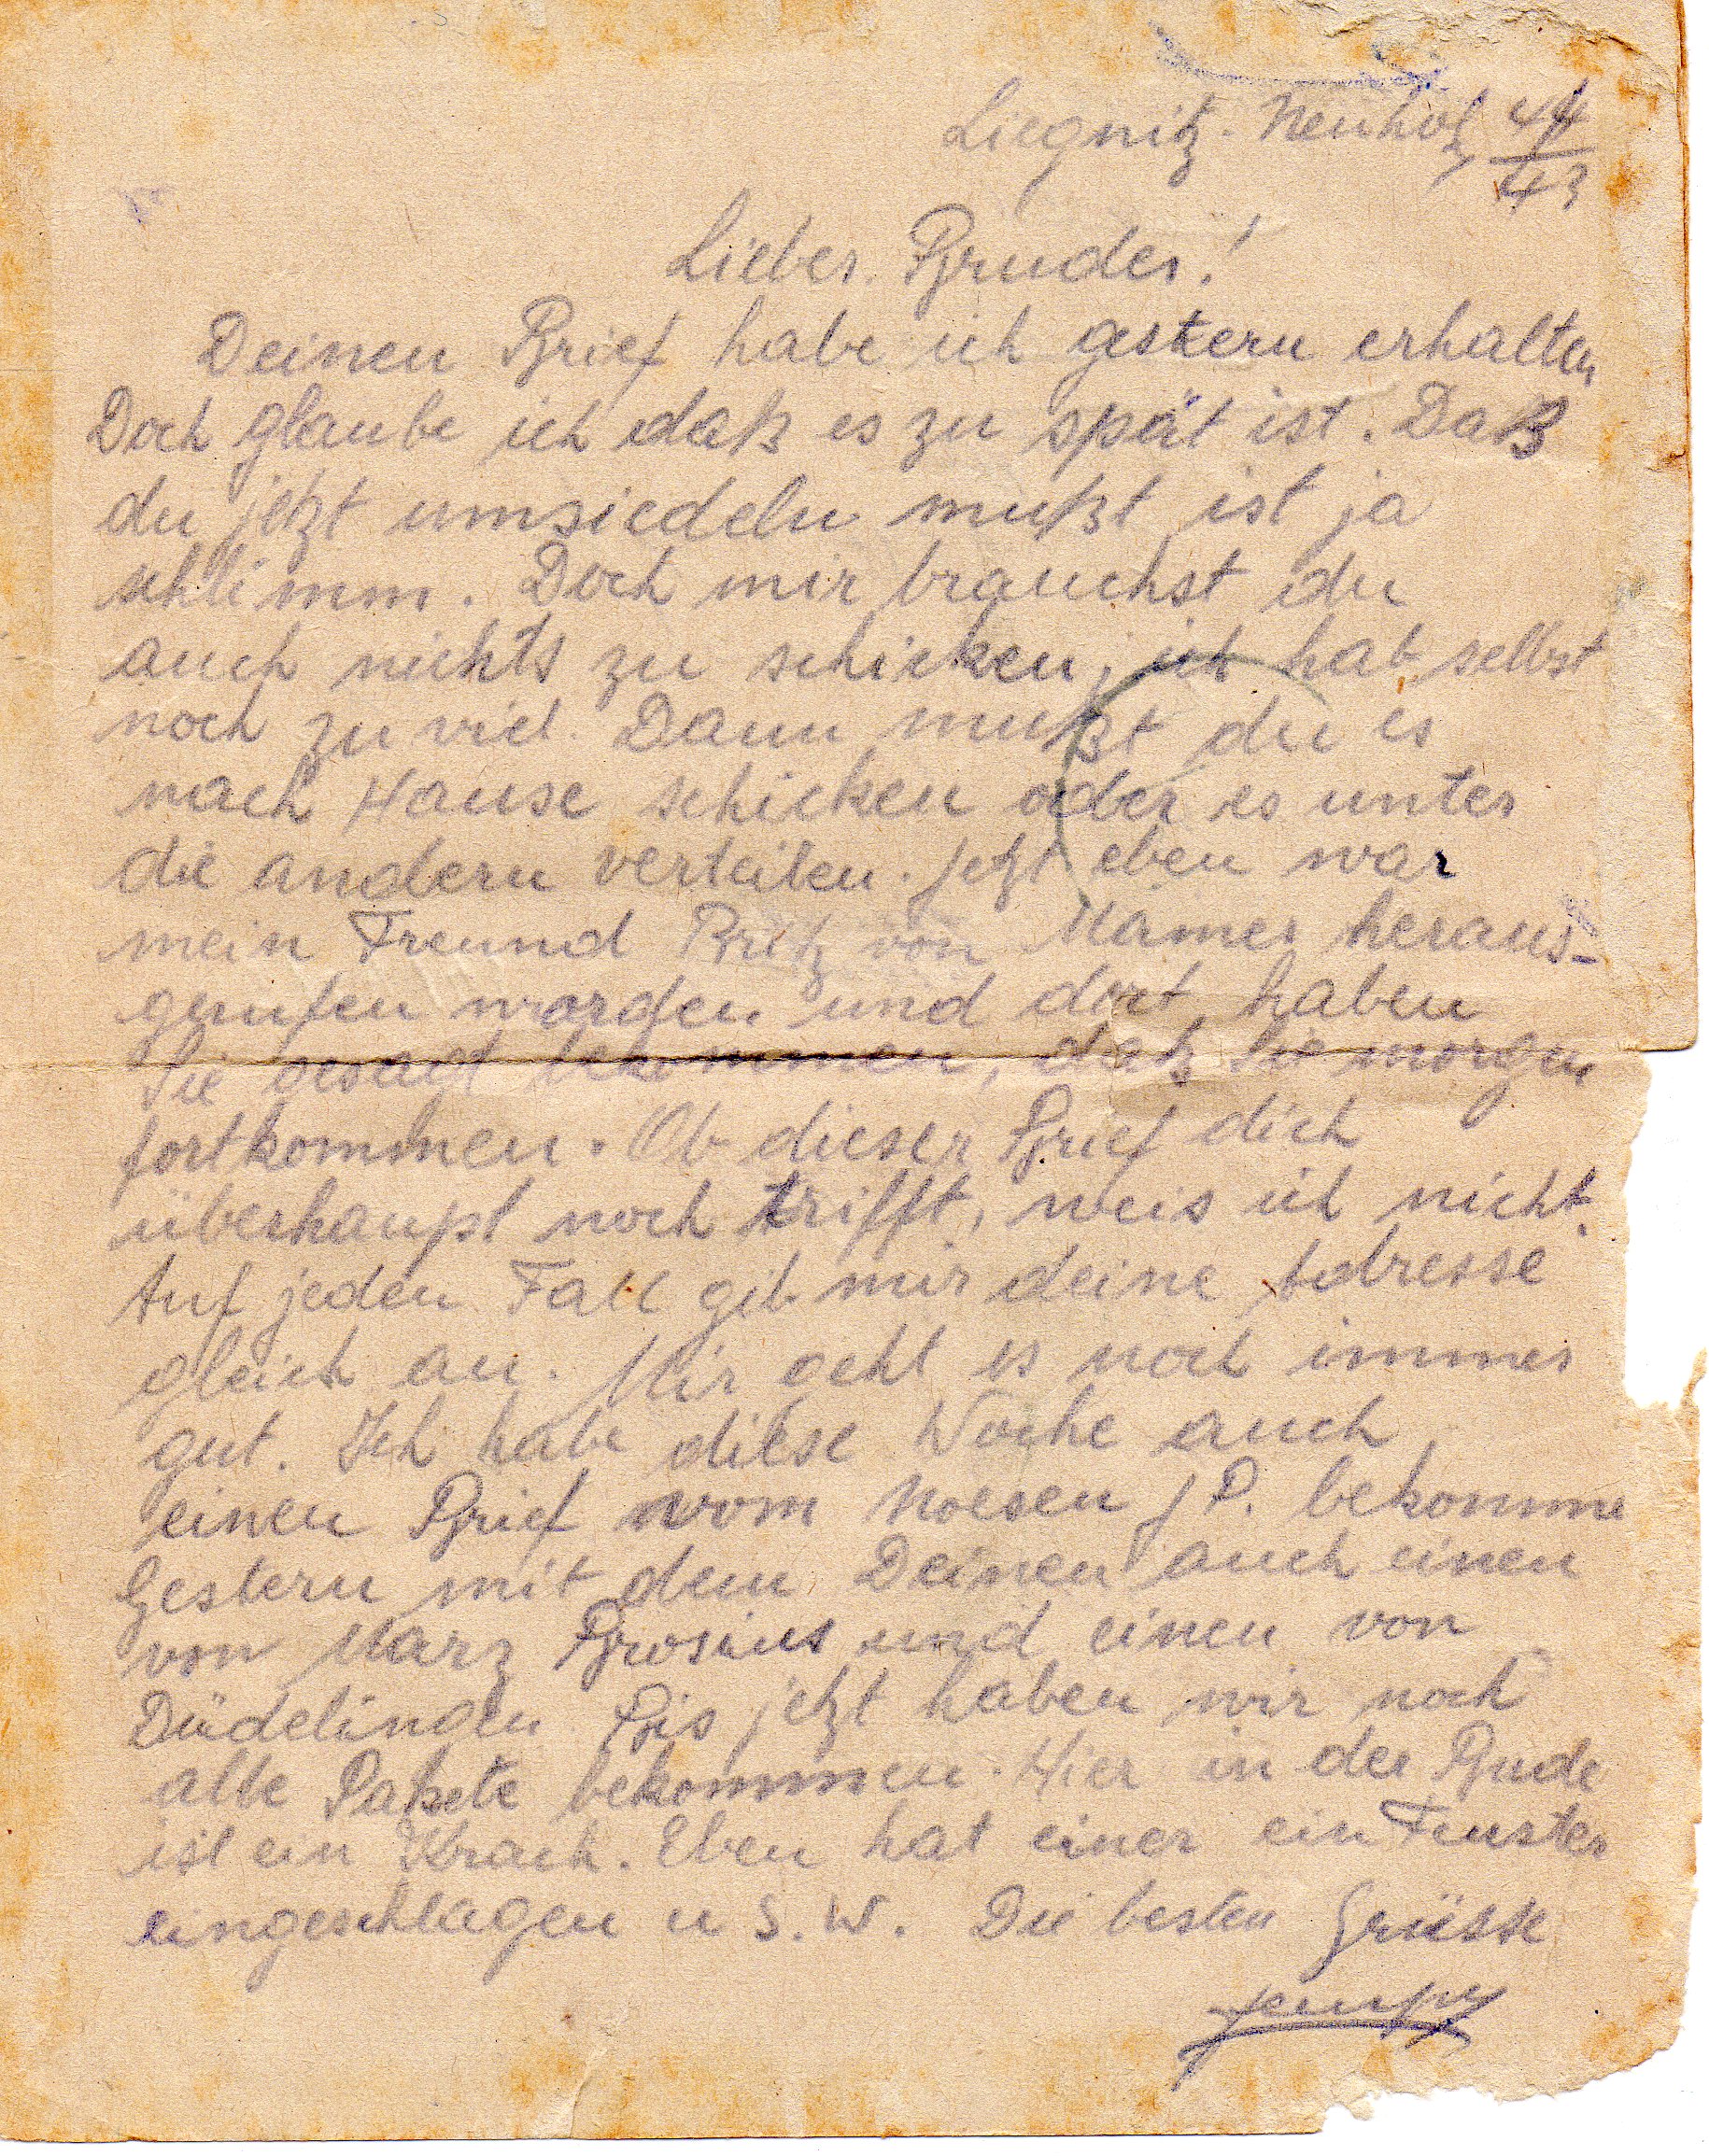 Liegnitz-Neuhof, 4/4 43
Lieber Bruder!
Deinen Brief habe ich gestern erhalten
Doch glaube ich daß es zu spät ist. Daß
du jetzt umsiedeln mußt ist ja
schlimm. Doch mir brauchst du
auch nichts zu schicken, ich hab selbst
noch zu viel. Dann mußt du es
nach Hause schicken oder es unter
die andern verteilen. Jetzt eben war
mein Freund Britz von Mamer heraus-
gerufen worden und dort haben
Sie gesagt bekommen, daß Sie morgen
fortkommen. Ob dieser Brief dich
überhaupt noch trifft, weis ich nicht.
Auf jeden Fall gib mir deine Adresse
gleich an. Mir geht es noch immer
gut. Ich habe diese Woche auch
einen Brief vom Noesen J P. bekomme
Gestern mit dem Deinen auch einen
von Marz Brosius und einen von
Düdelingen Bis jetzt haben wir noch
alle Pakete bekommen. Hier in der Bude
ist ein Krach. Eben hat einer ein Fenster
eingeschlagen u s. w. Die besten Grüsse
Jempy